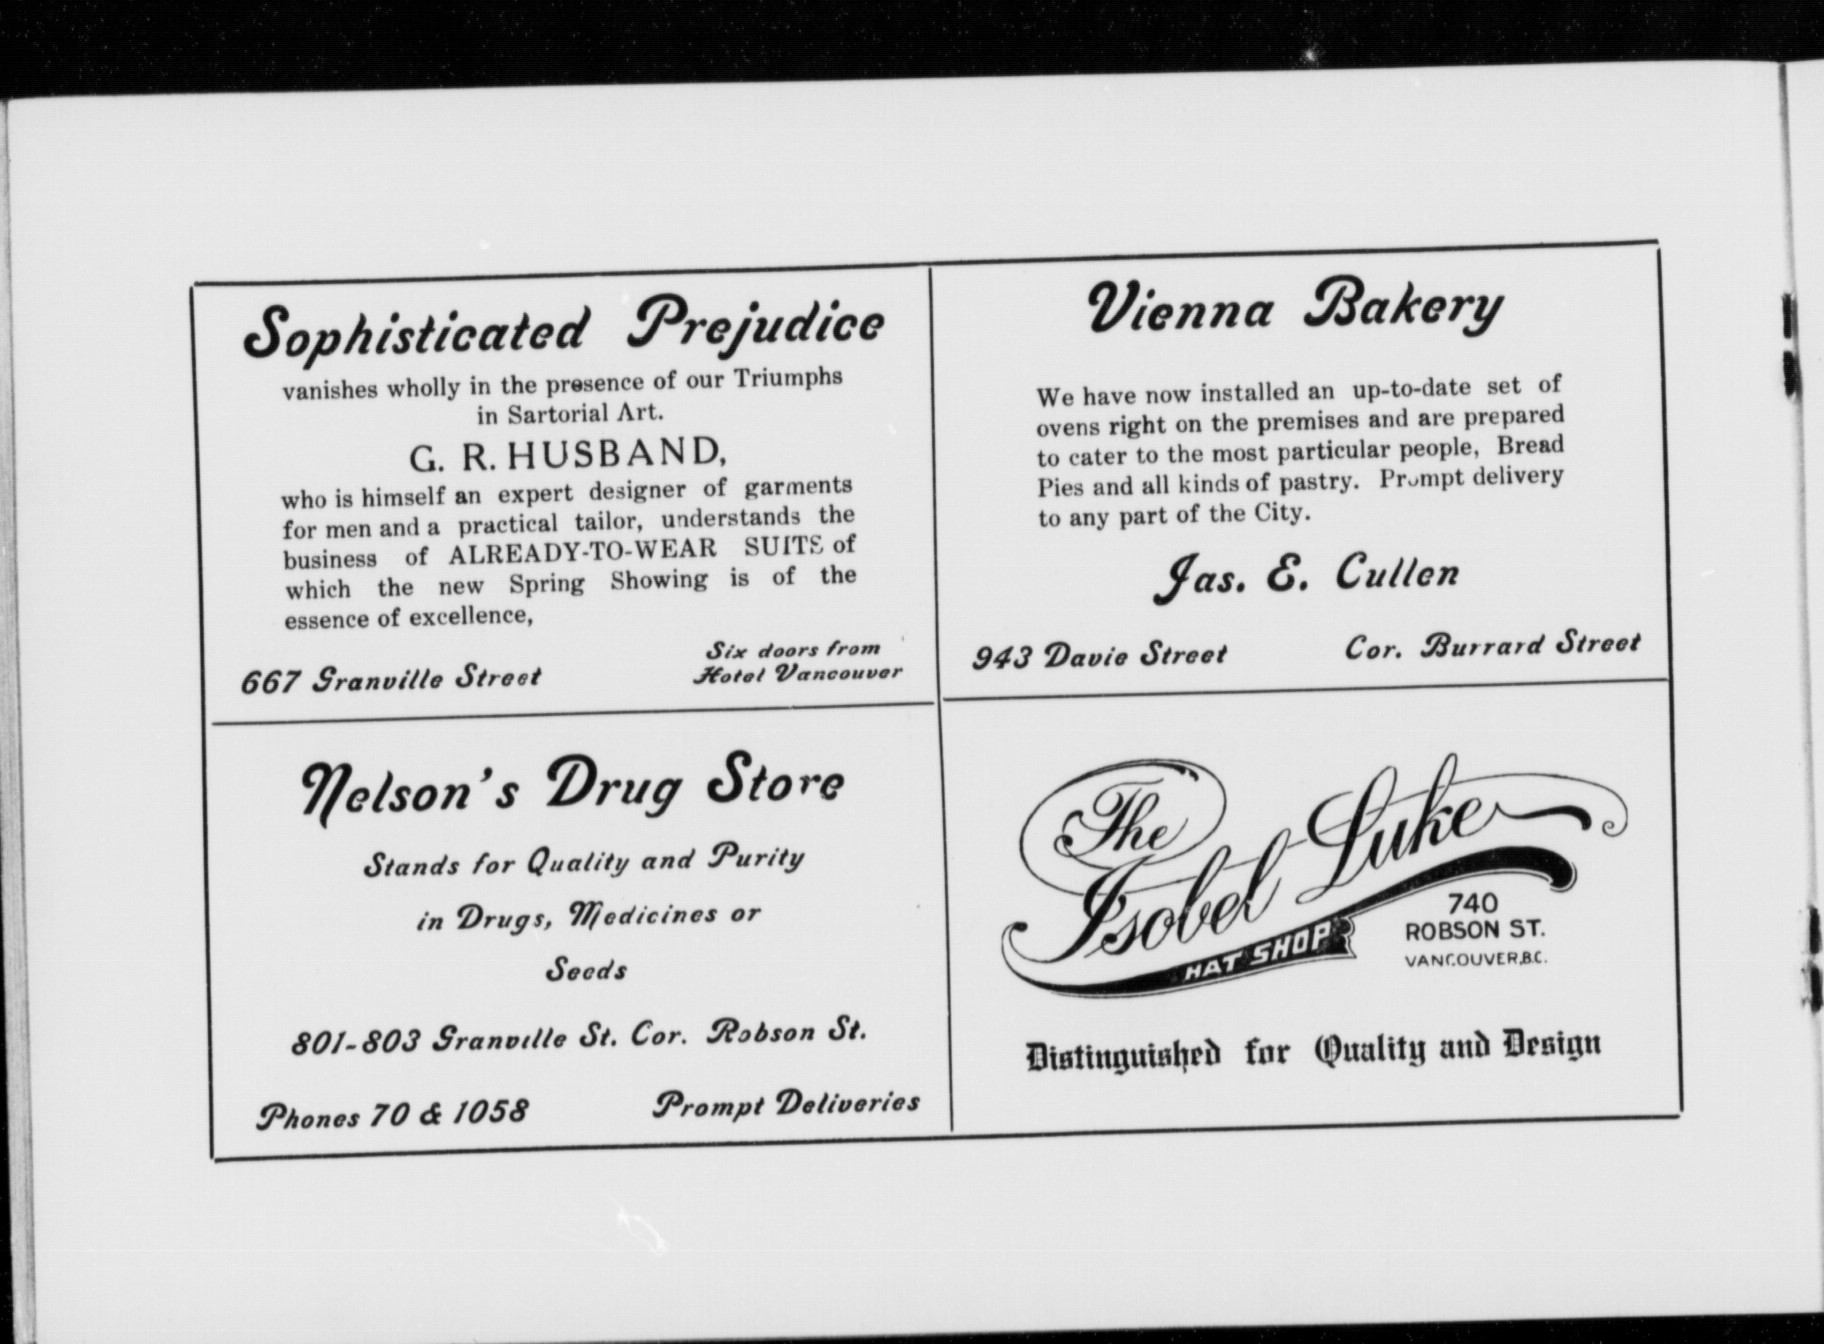 Sophisticated Prejudice
vanishes wholly in the presence of our Triumphs
in Sartorial Art.
G. R. HUSBAND,
who is himself an expert designer of garments
for men and a practical tailor, understands the
business of ALREADY-TO-WEAR SUITS of
which the new Spring Showing is of the
essence of excellence,
667 Granville Street
Six doors from
Hotel Vancouver
Vienna Bakery
We have now installed an up-to-date set of
ovens right on the premises and are prepared
to cater to the most particular people, Bread
Pies and all kinds of pastry. Prompt delivery
to any part of the City.
Jas. E. Cullen
943 Davie Street Cor. Burrard Street
Nelson's Drug Store
Stands for Quality and Purity
in Drugs, Medicines or
Seeds
801-803 Granville St. Cor. Robson St.
Phones 70 & 1058 Prompt Deliveries
The
Isobel Luke
HAT SHOP
740
ROBSON ST.
VANCOUVER, B.C.
Distinguished for Quality and Design